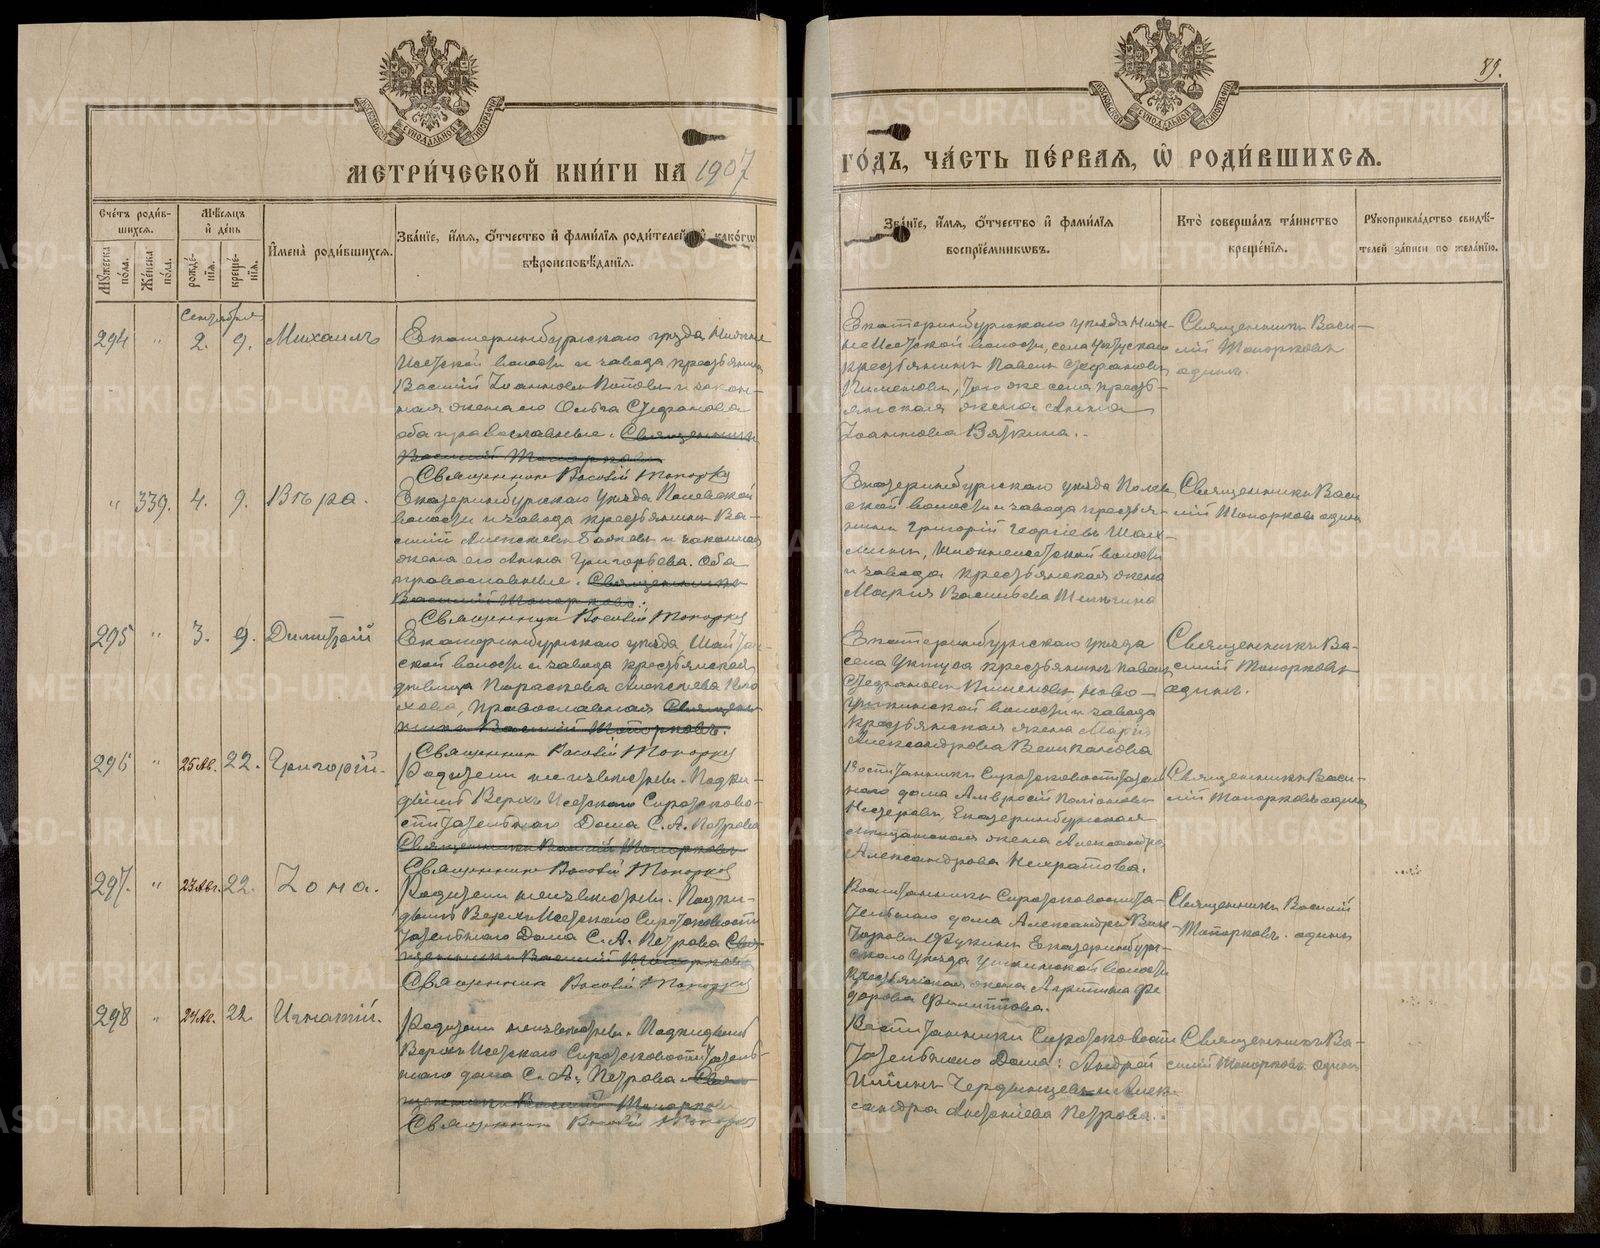 89.
МЕТРИ́ЧЕСКОЙ КНИ́ГИ НА 1907
ГО́ДЪ, ЧА́СТЬ ПЕ́РВАЯ, Ѡ РОДИ́ВШИХСЯ.
Сче́тъ роди́в-
шихся.
Мѣ́сяцъ
и҆ де́нь
Мꙋ́жеска по́ла.
Же́нска по́ла.
рожде́-
нїя.
креще́-
нїя.
И҆мена̀ роди́вшихся.
Зва́нїе, и҆́мя, ѻ҆́тчество и҆ фами́лїя роди́телей, и҆ како́гѡ
вѣроисповѣ́данїя.
Зва́нїе, и҆́мя, ѻ҆́тчество и҆ фами́лїя
воспрїе́мникѡвъ.
Кто̀ соверша́лъ та́инство
креще́нїя.
Рꙋкоприкла́дство свидѣ́-
телей за́писи по жела́нїю.
Сентября
294 " 2. 9. Михаилъ
Екатеринбургскаго уѣзда Нижне
Исетской волости и завода крестьянинъ
Василій Іоанновъ Поповъ и закон-
ная жена его Ольга Стефанова
оба православные. Священникъ
Василій Топорковъ
Священник Василій Топорков
Екатеринбургскаго уѣзда Ниж-
не Исетской волости, села Уктускаго
крестьянинъ Павелъ Стефановъ
Пименовъ, того же села кресть-
янская жена Анна
Іоаннова Вяткина.
Священникъ Васи-
лій Топорковъ
одинъ.
" 339. 4. 9. Вѣра.
Екатеринбургскаго уѣзда Полевской
волости и завода крестьянинъ Ва-
силій Алексѣевъ и законная
жена его Анна Григорьева. Оба
православные. Священникъ
Василій Топорковъ.
Священник Василій Топорков
Екатеринбургскаго уѣзда Полев
ской волости и завода крестья-
нинъ Григорій Георгіевъ
Нижнеисетской волости
и завода крестьянская жена
Марія Васильева
Священникъ Васи
лій Топорковъ одинъ
295 " 3. 9. Димитрій
Екатеринбургскаго уѣзда Шайтан-
ской волости и завода крестьянская
дѣвица Параскева Алексѣева
православная Священ
никъ Василій Топорковъ.
Священник Василій Топорков
Екатеринбургскаго уѣзда
села Уктуса крестьянинъ Павелъ
Стефановъ Пименовъ, Ново-
Уткинской волости и завода
крестьянская жена Марія
Александрова Великанова
Священникъ Ва-
силій Топорковъ
одинъ.
296 " 25 Ав. 22. Григорій.
Родители неизвѣстны. Подки-
дышъ Верхъ Исетскаго Сиротсковос-
питательнаго Дома С. А. Петрова
Священникъ Василій Топорковъ
Священник Василій Топорков
Воспитанникъ Сиротсковоспитатель
наго дома Амвросій
Нестеровъ, Екатеринбургская
мѣщанская жена Александра
Александрова
Священникъ Васи-
лій Топорковъ одинъ
297. " 23 Авг. 22. Іона.
Родители неизвѣстны. Подки-
дышъ Верхъ Исетскаго Сиротсковоспи
тательнаго Дома С. А. Петрова Свя-
щенникъ Василій Топорковъ
Священник Василій Топорков
Воспитанникъ Сиротсковоспита-
тельнаго дома Александръ Вик-
торовъ Екатеринбург-
скаго уѣзда Уткинской волости
крестьянская жена Ѳе
дорова Филиппова.
Священникъ Василій
Топорковъ. одинъ
298 " 24 Ав. 22. Игнатій.
Родители неизвѣстны. Подкидышъ
Верхъ Исетскаго Сиротсковоспитатель-
наго дома С. А. Петрова. Свя-
щенникъ Василій Топорковъ
Священник Василій Топорков
Воспитанники Сиротсковоспи
тательнаго Дома: Андрей
Чердынцевъ и Алек-
сандра Петрова.
Священникъ Ва-
силій Топорковъ один
METRIKI.GASO-URAL.RU